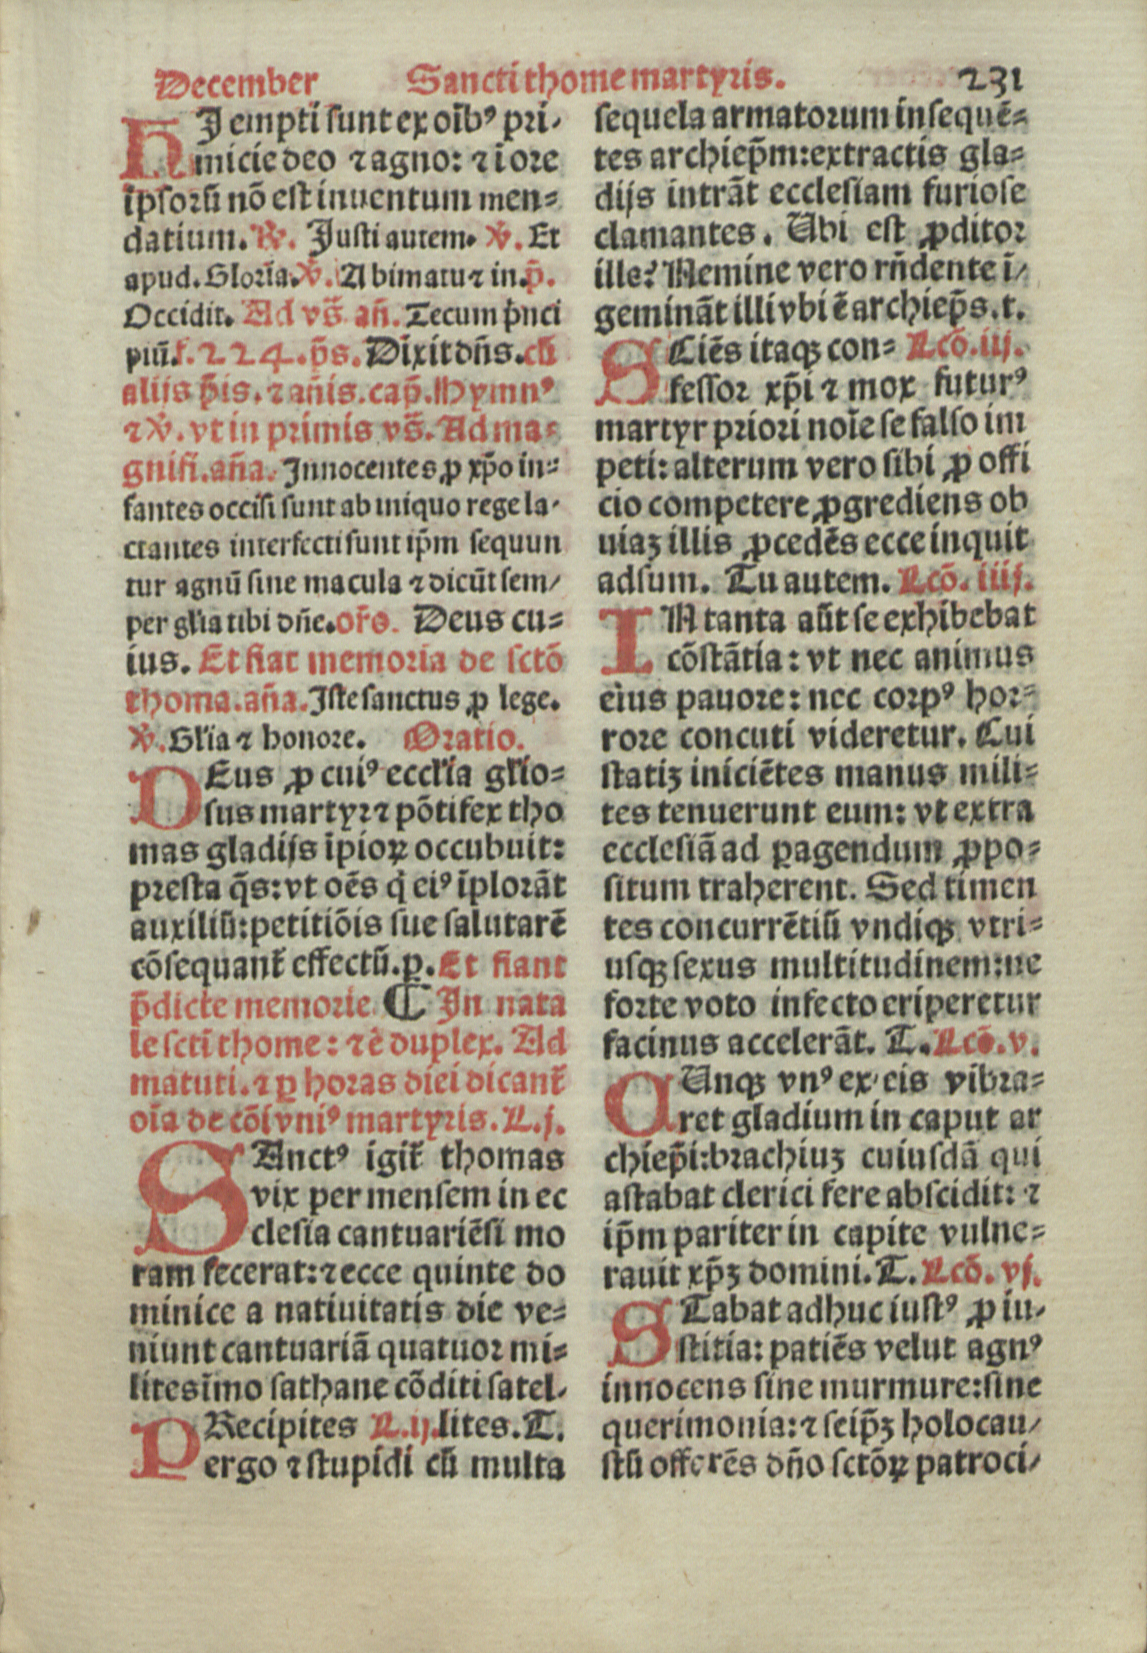 December Sancti thome martyris. 231
HJ empti sunt ex oībꝰ pri-
micie deo ⁊ agno: ⁊ i ore
ipsorū nō est inuentum men=
datium. ℟. Justi autem. ℣. Et
apud. Gloria. ℣. A bimatu ⁊ in. p̄.
Occidit. Ad vs̄. añ. Tecum pͥnci
piū. f. 224. p̄s. Dixit dn̄s. cū
alijs p̄is. ⁊ añis. cap̄. Hymnꝰ
⁊ ℣. vt in primis vs̄. Ad ma=
gnifi. aña. Innocentes ꝓ xp̄o in=
fantes occisi sunt ab iniquo rege la-
ctantes interfecti sunt ip̄m sequun
tur agnū sine macula ⁊ dicūt sem/
per gl̄ia tibi dn̄e. or̄o. Deus cu=
ius. Et fiat memoria de sctō
thoma. aña. Iste sanctus ꝓ lege.
℣. Gl̄ia ⁊ honore. Oratio.
DEus ꝓ cuiꝰ eccl̄ia gl̄io=
sus martyr ⁊ pōtifex tho
mas gladijs īpioꝝ occubuit:
presta q̄s: vt oēs qͥ eiꝰ īplorāt
auxiliū: petitiōis sue salutarē
cōsequant̄ effectū. ꝑ. Et fiant
p̄dicte memorie. ¶ In nata
le scti thome: ⁊ ē duplex. Ad
matuti. ⁊ ꝑ horas diei dicant̄
oīa de cōi vniꝰ martyris. L. j.
SAnctꝰ igit̄ thomas
vix per mensem in ec
clesia cantuariēsi mo
ram fecerat: ⁊ ecce quinte do
minice a natiuitatis die ve=
niunt cantuariā quatuor mi=
lites īmo sathane cōditi satel-
PRecipites L. ij. lites. T.
ergo ⁊ stupidi cū multa
sequela armatorum insequē=
tes archiep̄m: extractis gla=
dijs intrāt ecclesiam furiose
clamantes. Ubi est ꝓditor
ille? Nemine vero rn̄dente ī/
gemināt illi vbi ē archiep̄s. t.
SCiēs itaqꝫ con= Lcō. iij.
fessor xp̄i ⁊ mox futurꝰ
martyr priori noīe se falso im
peti: alterum vero sibi ꝓ offi
cio competere ꝓgrediens ob
uiaꝫ illis ꝓcedēs ecce inquit
adsum. Tu autem. Lcō. iiij.
IN tanta aūt se exhibebat
cōstātia: vt nec animus
eius pauore: nec corpꝰ hor=
rore concuti videretur. Cui
statiꝫ iniciētes manus mili=
tes tenuerunt eum: vt extra
ecclesiā ad ꝑagendum ꝓpo=
situm traherent. Sed timen
tes concurrētiū vndiqꝫ vtri=
usqꝫ sexus multitudinem: ne
forte voto infecto eriperetur
facinus accelerāt. T. Lcō. v.
CUnqꝫ vnꝰ ex eis vibra=
ret gladium in caput ar
chiep̄i: brachiuꝫ cuiusdā qui
astabat clerici fere abscidit: ⁊
ip̄m pariter in capite vulne=
rauit xp̄ꝫ domini. T. Lcō. vj.
STabat adhuc iustꝰ ꝓ iu-
stitia: patiēs velut agnꝰ
innocens sine murmure: sine
querimonia: ⁊ seip̄ꝫ holocau/
stū offerēs dn̄o sctōꝝ patroci/